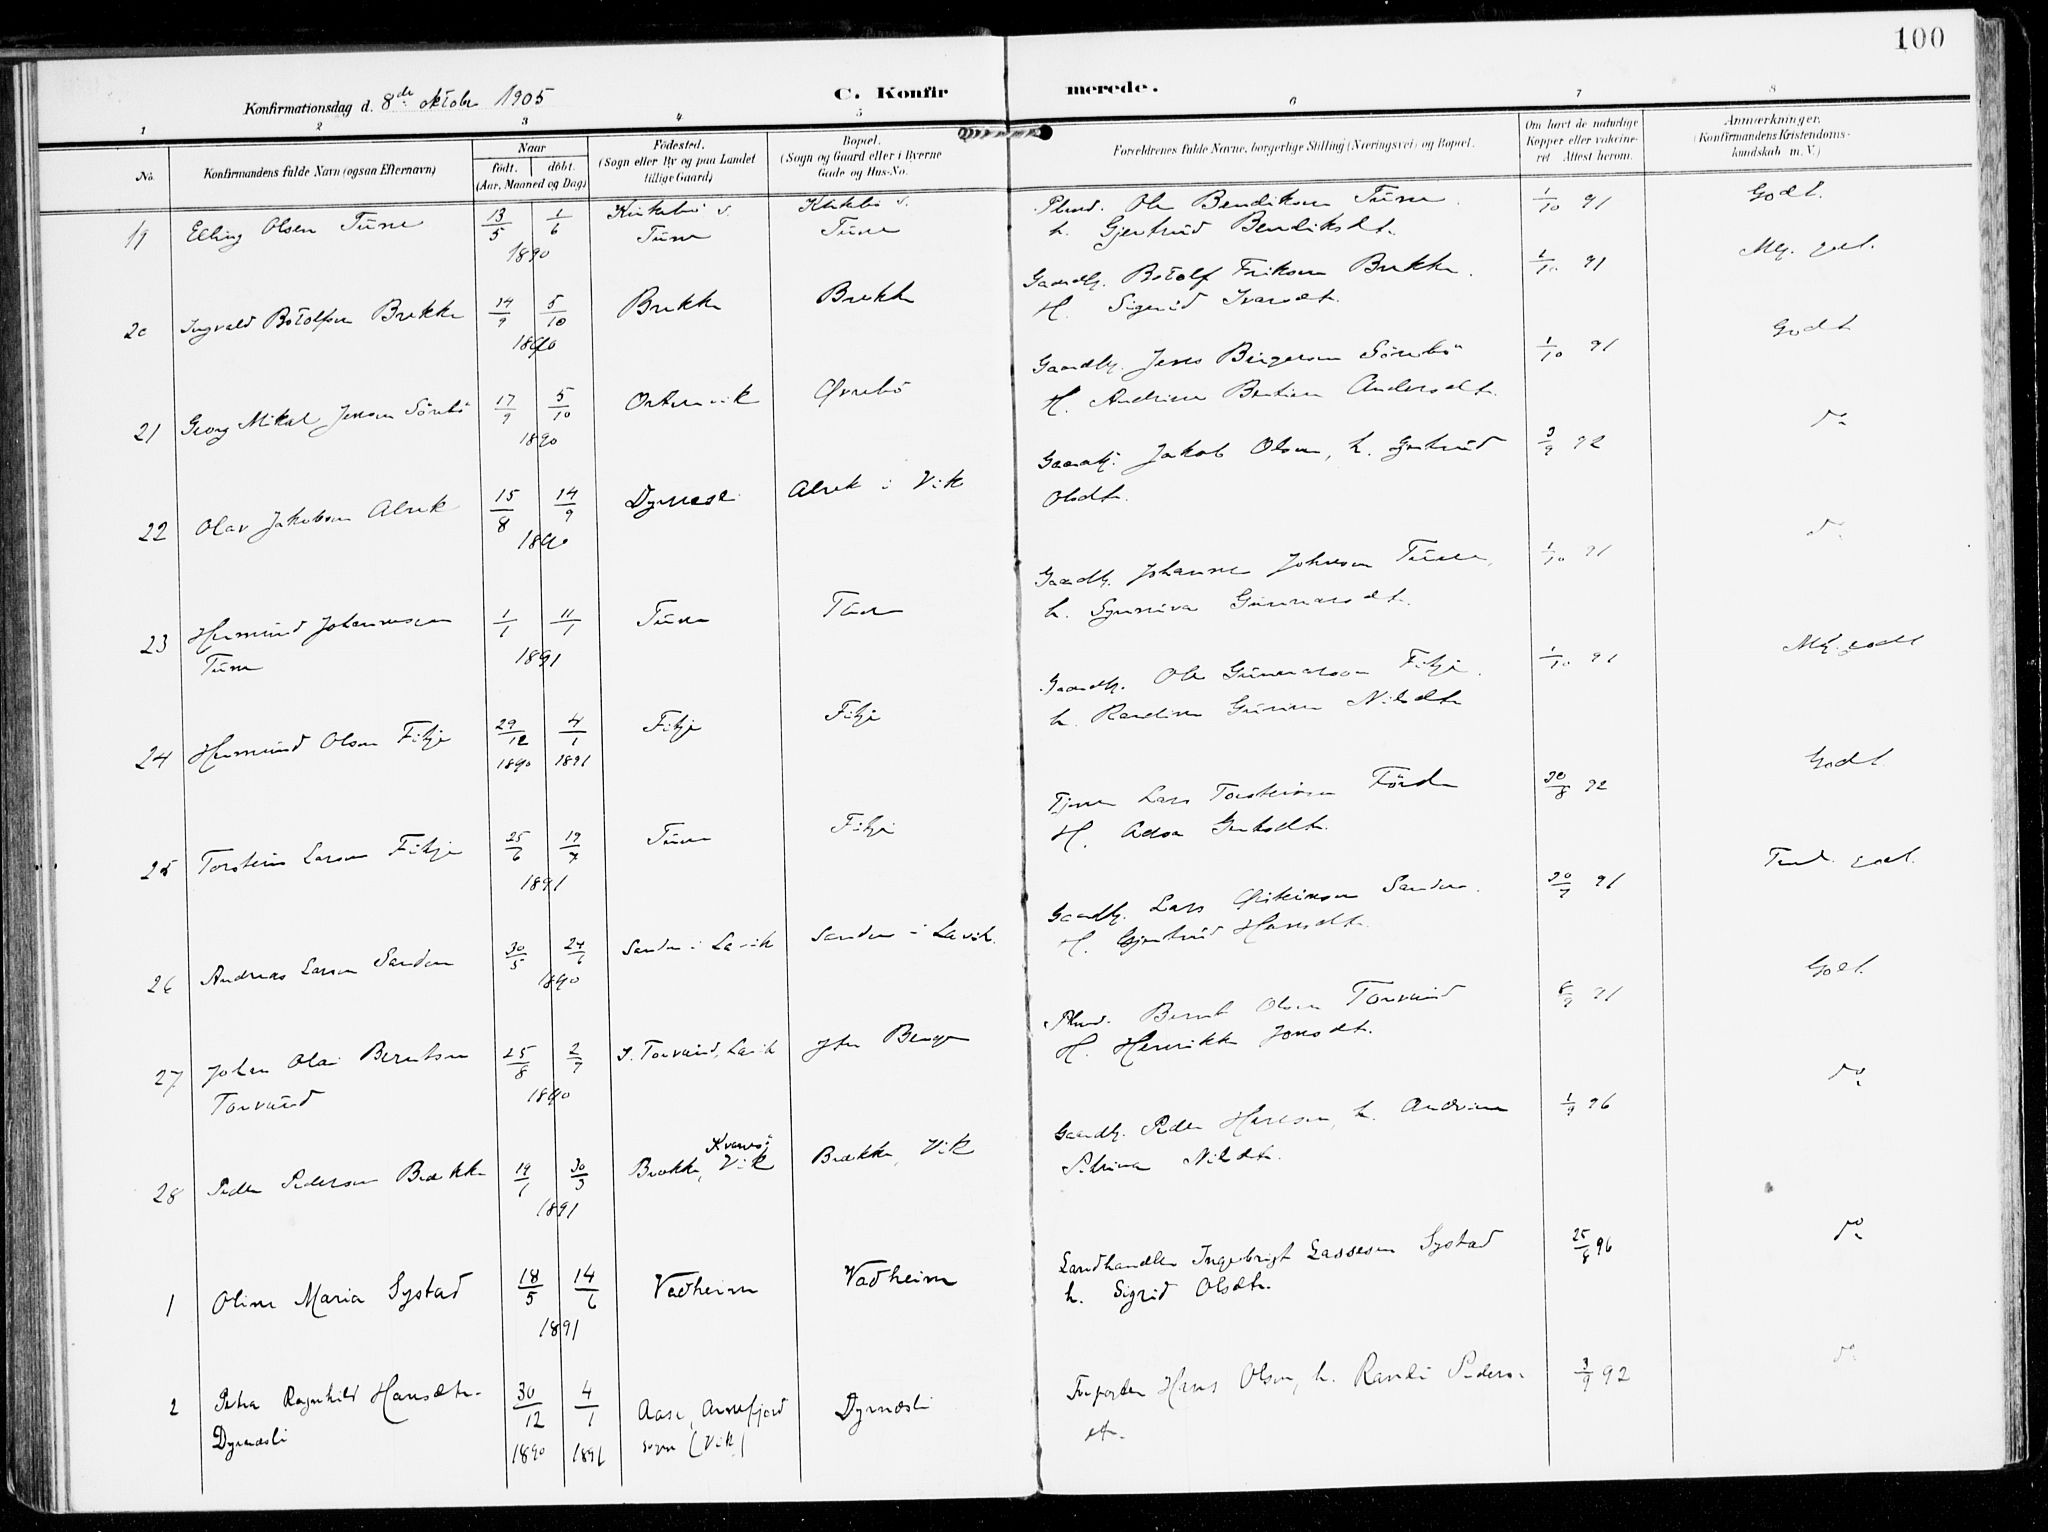 100
Konfirmationsdag d. 8de oktobr 1905
C. Konfirmerede.
1 2 3 4 5 6 7 8
No. Konfirmandens fulde Navn (ogsaa Efternavn) Naar født. døbt. (Aar, Maaned og Dag) Fødested. (Sogn eller By og paa Landet tillige Gaard) Bopæl. (Sogn og Gaard eller i Byerne Gade og Hus-No. Forældrenes fulde Navne, borgerlige Stilling (Næringsvei) og Bopæl. Om havt de naturlige Kopper eller vakcineret Attest herom. Anmærkninger. (Konfirmandens Kristendomskundskab m. V.)
19 Elling Olsen Tune 13/5 1/6 1890 Kirkebø s. Tune Kirkebø s. Tune Plmd. Ole Bendiksen Tune 1/10 91 Godt.
h. Gjertrud Bendiksdt.
20 Ingvald Botolfsen Brekke 14/9 5/10 1890 Brekke Brekke Gaardbr. Botolf Eriksen Brekke. 1/10 91 Mg. godt.
H. Sigrid Ivarsdt.
21 Georg Mikal Jensen Sörebö 17/9 5/10 1890 Ortnevik Øvrebö Gaardbr. Jens Birgersen Sörebö 1/10 91 Godt
H. Andrine Bertine Andersdt.
22 Olav Jakobsen Alrek 15/8 14/9 1890 Dyrnesli Alrek i Vik Gaardbr. Jakob Olsen, h. Gjertrud 3/9 92 do
Olsdt.
23 Hermund Johannesen 1/1 11/1 1891 Tune Tune Gaardbr. Johannes Johnsen Tune, 1/10 91 do
Tune h. Synneva Gunnarsdt.
24 Hermund Olsen Fitje 29/12 1890 4/1 1891 Fitje Fitje Gaardbr. Ole Gunnarsson Fitje. 1/10 91 Mg. godt
h. Randine Gurine Nilsdt
25 Torstein Larsen Fitje 25/6 19/7 1891 Tune Fitje Tjener Lars Torsteinsen Förde 30/8 92 Godt
H.
26 Andreas Larsen Sanden 30/5 24/6 1890 Sanden i Lavik Sanden i Lavik. Gaardbr. Lars Sanden. 20/9 91 godt.
H. Gjertrud Hansdt.
27 Johan Olai Berntsen 25/8 2/9 1890 Torvund, Lavik Plmd. Bernt Olsen Torvund 8/9 91 Godt.
Torvund H. Henrikke Jonsdt.
28 Peder Pedersen Brække 14/1 30/3 1891 Brække, Vik Kvamsø Brække, Vik Gaardbr. Peder Hansen, h. Andrine 1/9 96 do
Petrine Nilsdt.
1 Oline Maria Systad 18/5 14/6 1891 Vadheim Vadheim Landhandler Ingebrigt Lassesen Systad 25/8 96 do
h. Sigrid Olsdt.
2 Petra Ragnhild Hansdt. 30/12 1890 4/1 1891 Aase, Arnefjord sogn (Vik) Dyrnesli Hans Olsen, h. Randi Peders- 3/9 92 do
Dyrnesli dt.